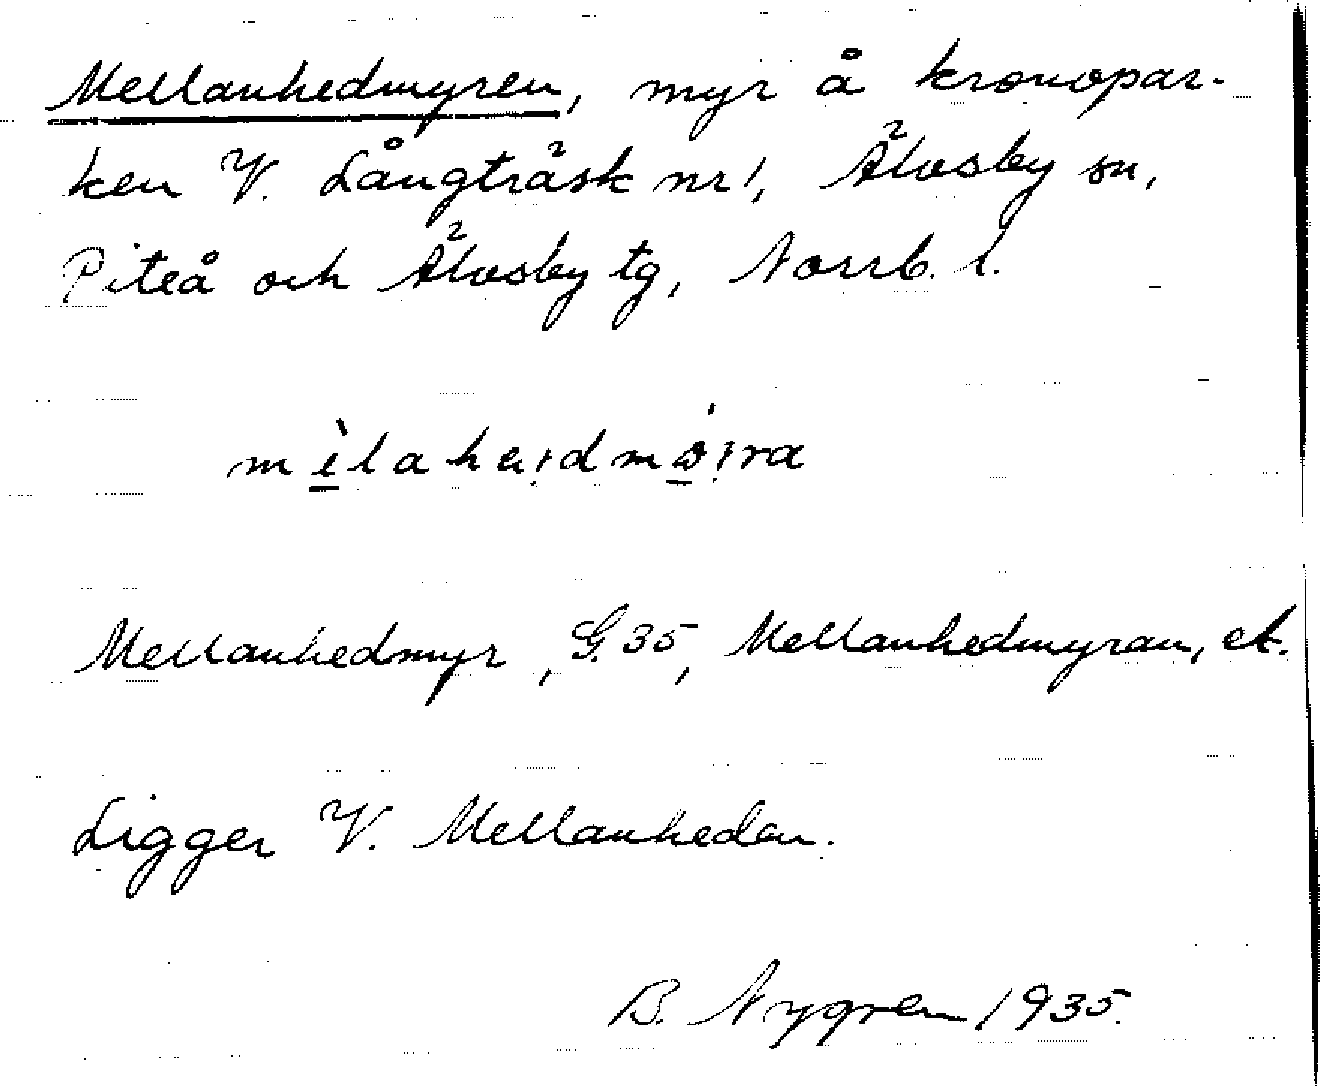 Mellanhedmyren, myr å kronopar-
ken V. Långträsk nr 1, Älvsby sn,
Piteå och Älvsby tg, Norrb. l.
Mellanhedmyr, G. 35, Mellanhedmyran, ek.
Ligger V. Mellanheden.
B. Nygren 1935.